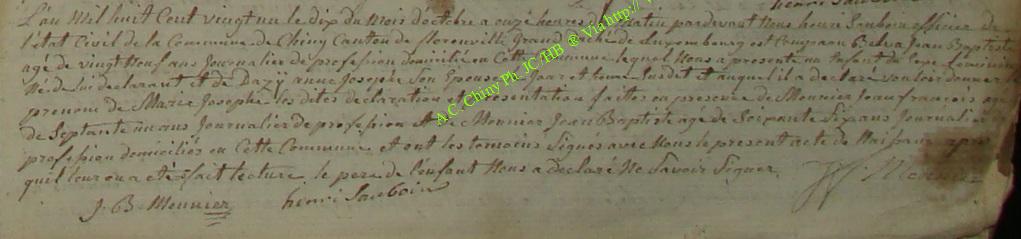 henri Sauboin
L'an Mil huit Cent vingt un le dix du mois doctobre a onze heures du Matin pardevant Nous henri Sauboin officier de
l'état Civil de la Commune de Chiny Canton de florenville Grand Duché de Luxembourg est Comparu Belva Jean Baptiste
agé de vingt Neuf ans Journalier de profession domicilié en Cette Commune lequel Nous a presenté un Enfant du Sexe feminin
Né de lui declarant et de Dazy anne Josephe Son Epouse et auquel il a declaré vouloir donner le
prenom de Marie Josephe les dites declaration et presentation faittes en presence de Meunier Jean françois agé
de Septante un ans Journalier de profession et de Meunier Jean Baptiste agé de Soixante Six ans Journalier de
profession domiciliés en Cette Commune et ont les temoins Signés avec Nous le present acte de Naissance apres
quil leur en a eté fait lecture le pere de l'enfant Nous a declaré Ne Savoir Signer
J. B. Meunier henri Sauboin J f. Meunier
A.C. Chiny Ph. JC/HB ® Via http://